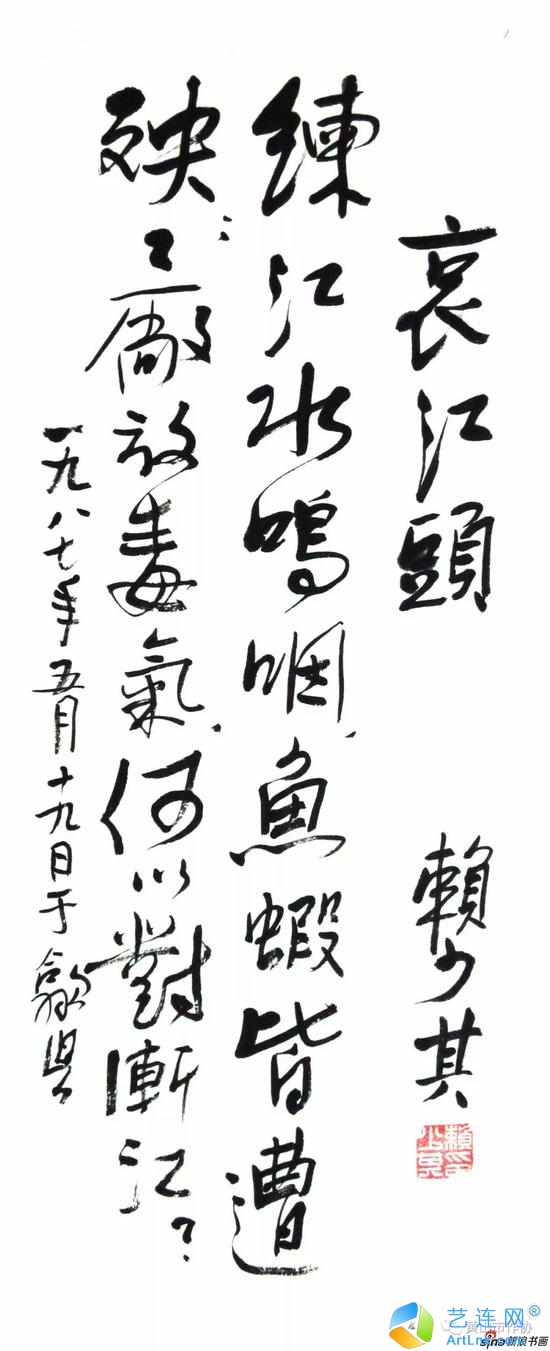 哀江頭 賴少其
練江水嗚咽、魚蝦皆遭
殃；工廠放毒氣、何以對漸江？
一九八七年五月十九日于歙县
艺连网®
黄山市作协
sina新浪书画